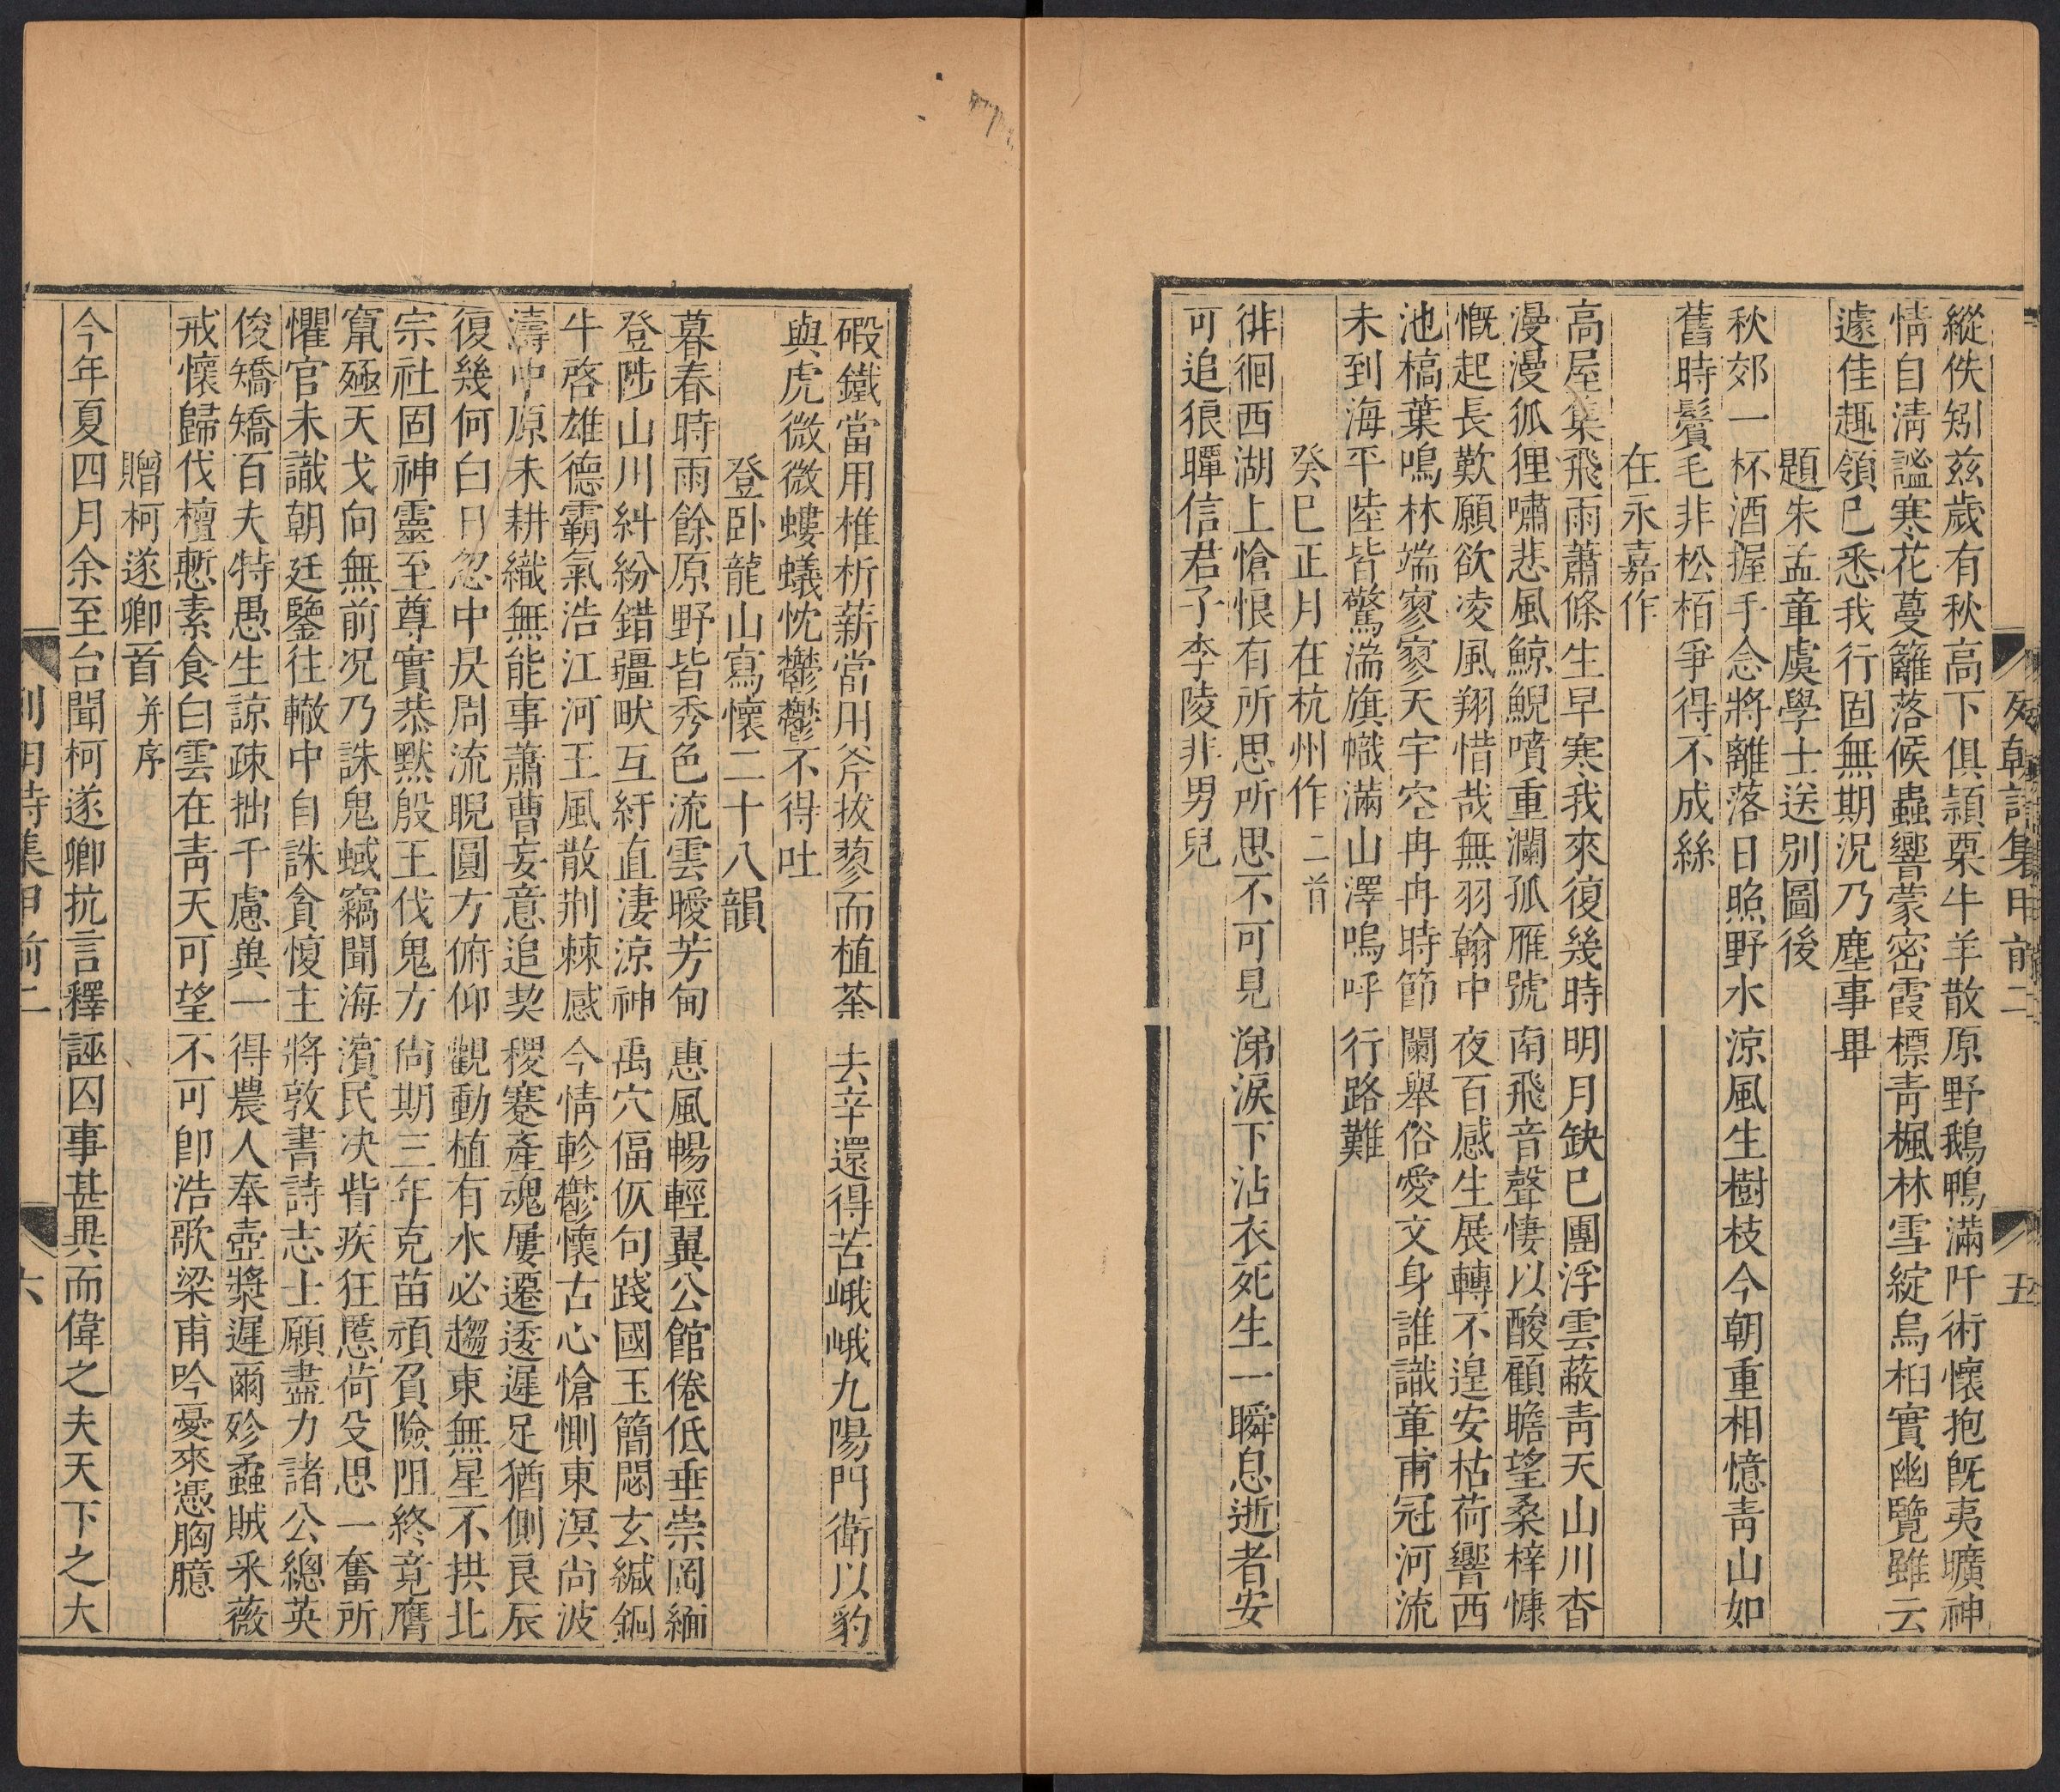 列朝詩集甲前二
五
縱佚矧茲歲有秋高下俱頴栗牛羊散原野鵝鴨滿阡術懷抱旣夷曠神
情自淸謐寒花蔓籬落候蟲響蒙密霞標靑楓林雪綻烏桕實幽覽雖云
遽佳趣領已悉我行固無期況乃塵事畢
題朱孟章虞學士送別圖後
秋郊一杯酒握手念將離落日照野水涼風生樹枝今朝重相憶靑山如
舊時鬢毛非松栢爭得不成絲
在永嘉作
高屋集飛雨蕭條生早寒我來復幾時明月缺已團浮雲蔽靑天山川杳
漫漫狐狸嘯悲風鯨鯢噴重瀾孤雁號南飛音聲悽以酸顧瞻望桑梓慷
慨起長歎願欲凌風翔惜哉無羽翰中夜百感生展轉不遑安枯荷響西
池槁葉鳴林端寥寥天宇空冉冉時節闌舉俗愛文身誰識章甫冠河流
未到海平陸皆驚湍旗幟滿山澤嗚呼行路難
癸巳正月在杭州作二首
徘徊西湖上愴悢有所思所思不可見涕淚下沾衣死生一瞬息逝者安
可追狼瞫信君子李陵非男兒
碬鐵當用椎析薪當用斧拔蓼而植荼去辛還得苦峨峨九陽門衛以豹
與虎微微螻蟻忱鬱鬱不得吐
登卧龍山寫懷二十八韻
暮春時雨餘原野皆秀色流雲曖芳甸惠風暢輕翼公館倦低垂崇岡緬
登陟山川糾紛錯疆畎互紆直淒涼神禹穴偪仄句踐國玉簡閟玄緘銅
牛啓雄德霸氣浩江河王風散荆棘感今情軫鬱懷古心愴惻東溟尚波
濤中原未耕織無能事蕭曹妄意追契稷蹇蹇產魂屢遷逶遲足猶側良辰
復幾何白日忽中昃周流睨圓方俯仰觀動植有水必趨東無星不拱北
宗社固神靈至尊實恭默殷王伐鬼方尙期三年克苗頑負險阻終竟膺
竄殛天戈向無前况乃誅鬼蜮竊聞海濱民决眥疾狂慝荷殳思一奮所
懼官未識朝廷鑒往轍中自誅貪愎主將敦書詩志士願盡力諸公總英
俊矯矯百夫特愚生諒疎拙千慮兾一得農人奉壺漿遲爾殄蟊賊采薇
戒懷歸伐檀慙素食白雲在靑天可望不可卽浩歌梁甫吟憂來憑胸臆
贈柯遂卿一首并序
今年夏四月余至台聞柯遂卿抗言釋誣囚事甚異而偉之夫天下之大
列朝詩集甲前二
六